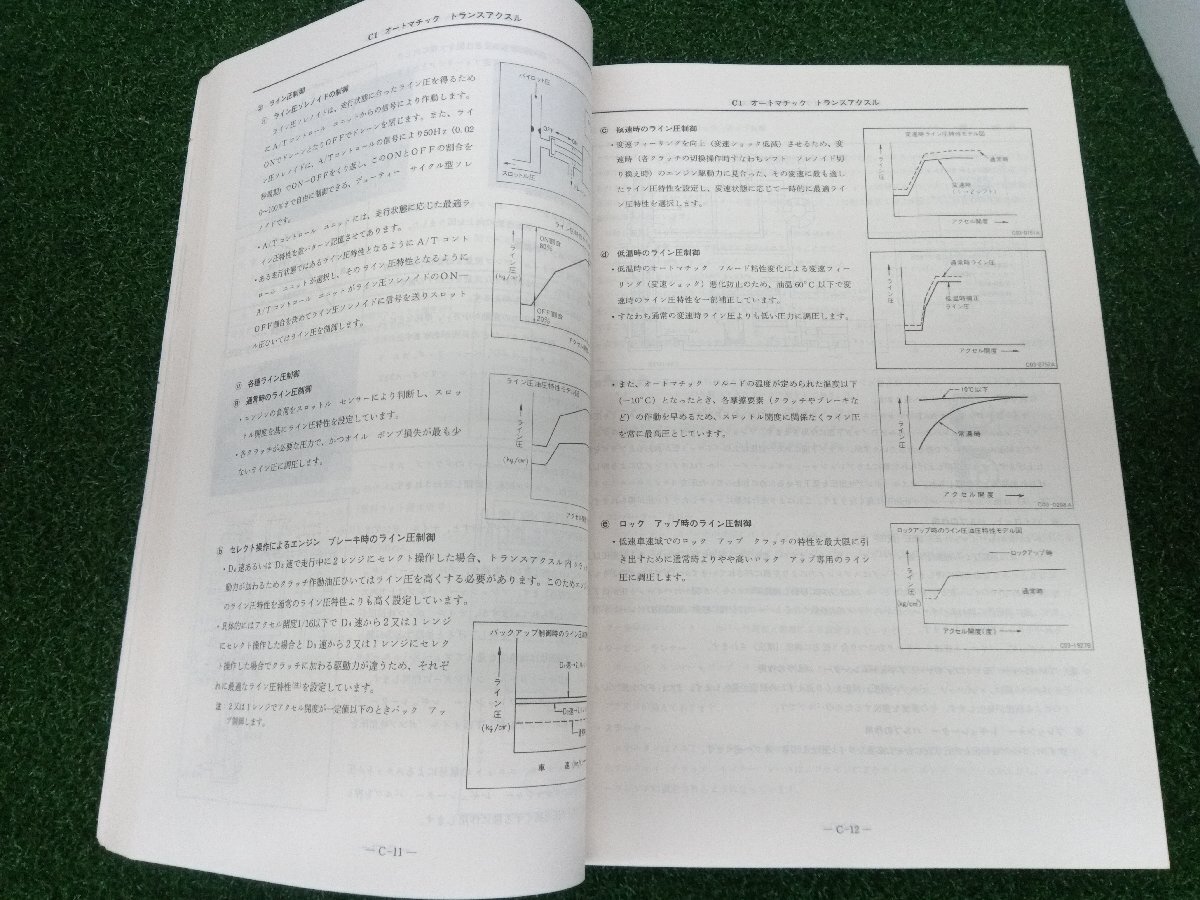 C1 オートマチック トランスアクスル
② ライン圧制御
① ライン圧ソレノイドの制御
ライン圧ソレノイドは、走行状態に合ったライン圧を得るため
にA/Tコントロール ユニットからの信号により作動します。
ONでドレーンとなしOFFでドレーンを閉じます。また、ライ
ン圧ソレノイドは、A/Tコントロールの信号により50Hz(0.02
秒周期)でON-OFFをくり返し、このONとOFFの割合を
0~100%まで自由に制御できる、デューティー サイクル型ソレ
ノイドです。
・A/Tコントロール ユニットには、走行状態に応じた最適ラ
イン圧特性を数パターン記憶させてあります。
・ある走行状態ではあるライン圧特性となるようにA/Tコント
ロール ユニットが選択し、そのライン圧特性となるように
A/Tコントロール ユニットがライン圧ソレノイドのON-
OFF割合を決めてライン圧ソレノイドに信号を送りスロット
ル圧ひいてはライン圧を制御します。
パイロット圧
OFF
スロットル圧
ライン圧
(kg/cm²)
ON割合
80%
OFF割合
20%
各種ライン圧制御
ⓐ 通常時のライン圧制御
・エンジンの負荷をスロットル センサーにより判断し、スロッ
トル開度を基にライン圧特性を設定しています。
・各クラッチが必要な圧力で、かつオイル ポンプ損失が最も少
ないライン圧に調圧します。
ライン圧油圧特性モデル図
ライン圧
(kg/cm²)
アクセル
ⓑ セレクト操作によるエンジン ブレーキ時のライン圧制御
動力が加わるためクラッチ作動油圧ひいてはライン圧を高くする必要があります。このため
のライン圧特性を通常のライン圧特性よりも高く設定しています。
・具体的にはアクセル開度1/16以下でD₄速から2又は1レンジ
にセレクト操作した場合とD₃速から2又は1レンジにセレク
ト操作した場合でクラッチに加わる駆動力が違うため、それぞ
れに最適なライン圧特性(注)を設定しています。
注 2又は1レンジでアクセル開度が一定値以下のときバック アッ
プ制御します。
バックアップ制御時のライン圧
ライン圧
(kg/cm²)
車 速
— C-11 —
C1 オートマチック トランスアクスル
ⓒ 変速時のライン圧制御
・変速フィーリングを向上(変速ショック低減)させるため、変
速時(各クラッチの切換操作時すなわちシフト ソレノイド切
り換え時)のエンジン駆動力に見合った、その変速に最も適し
たライン圧特性を設定し、変速状態に応じて一時的に最適ライ
ン圧特性を選択します。
変速時ライン圧特性モデル図
ライン圧
通常時
変速時
アクセル開度
C03-0151A
ⓓ 低温時のライン圧制御
・低温時のオートマチック フルード粘性変化による変速フィー
リング(変速ショック)悪化防止のため、油温60°C以下で変
速時のライン圧特性を一部補正しています。
・すなわち通常の変速時ライン圧よりも低い圧力に調圧します。
通常時ライン圧
ライン圧
低温時補正
ライン圧
アクセル開度
C03-0152A
・また、オートマチック フルードの温度が定められた温度以下
(−10°C)となったとき、各摩擦要素(クラッチやブレーキな
ど)の作動を早めるため、スロットル開度に関係なくライン圧
を常に最高圧としています。
−10°C以下
ライン圧
常温時
アクセル開度
C03-0268A
ⓔ ロック アップ時のライン圧制御
・低速車速域でのロック アップ クラッチの特性を最大限に引
き出すために通常時よりやや高いロック アップ専用のライン
圧に調圧します。
ロックアップ時のライン圧油圧特性モデル図
ロックアップ時
ライン圧
(kg/cm²)
通常時
アクセル開度(度)
C03-1927B
— C-12 —